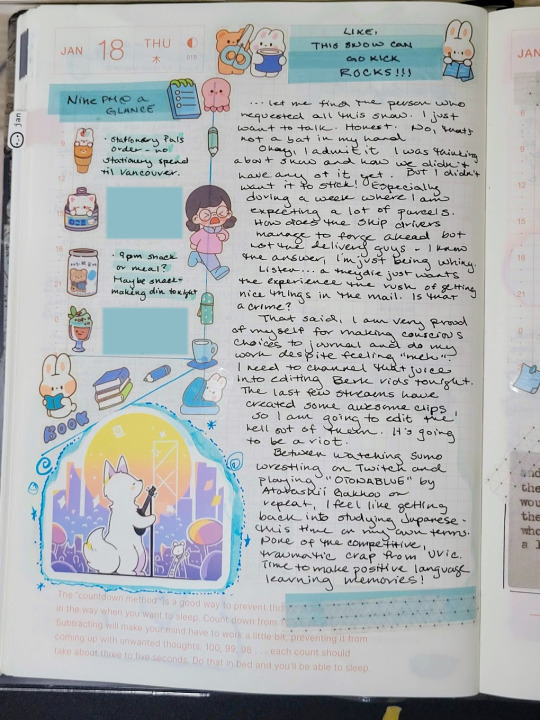 JAN 18 THU
木
LIKE,
THIS SNOW CAN
GO KICK
ROCKS!!!
Nine PM @ a
GLANCE
jan
• Stationery Pals
order - no
stationery spend
til Vancouver.
• 9pm snack
or meal?
Maybe snack-
making din tonight
BOOK
... let me find the person who
requested all this snow. I just
want to talk. Honest. No, that's
not a bat in my hand.
Okay, I admit it. I was thinking
about snow and how we didn't
have any of it yet. But I didn't
want it to stick! Especially
during a week where I am
expecting a lot of parcels.
How does the Skip drivers
manage to forge ahead but
not the delivery guys - I know
the answer, I'm just being whiny.
Listen... a they/he just wants
the experience the rush of getting
nice things in the mail. Is that
a crime?
That said, I am very proud
of myself for making conscious
choices to journal and do my
work despite feeling "meh".
I need to channel that juice
into editing Berk kids tonight.
The last few streams have
created some awesome clips
so I am going to edit the
hell out of them. It's going
to be a riot.
Between watching sumo
wrestling on Twitch and
playing "OTONABLUE" by
Atarashii Gakkou on
repeat, I feel like getting
back into studying Japanese-
this time on my own terms.
None of the competitive,
traumatic crap from UVic.
Time to make positive language
learning memories!
The "countdown method" is a good way to prevent
in the way when you want to sleep. Count down from
Subtracting will make your mind have to work a little bit, preventing it from
coming up with unwanted thoughts. 100, 99, 98 . . . each count should
take about three to five seconds. Do that in bed and you'll be able to sleep.
JAN